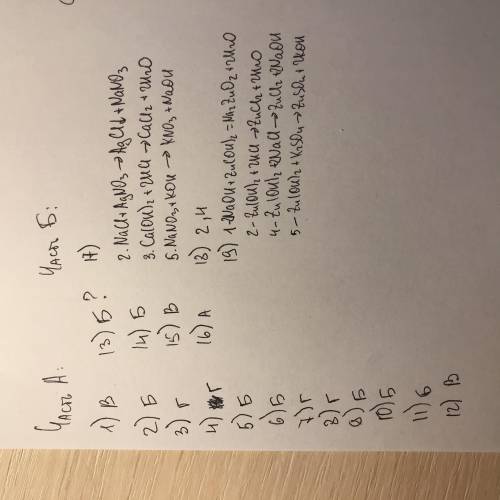 Часть А:
1) В
2) Б
3) Г
4) Г
5) Б
6) Б
7) Г
8) Г
9) Б
10) Б
11) б
12) В
13) Б ?
14) Б
15) В
16) А
Часть Б:
17)
2. NaCl + AgNO3 → AgCl↓ + NaNO3
3. Ca(OH)2 + 2HCl → CaCl2 + 2H2O
5. NaNO3 + KOH → KNO3 + NaOH
18) 2,4
19) 1 - 2NaOH + Zn(OH)2 = Na2ZnO2 + 2H2O
2 - Zn(OH)2 + 2HCl → ZnCl2 + 2H2O
4 - Zn(OH)2 + 2NaCl → ZnCl2 + 2NaOH
5 - Zn(OH)2 + K2SO4 → ZnSO4 + 2KOH